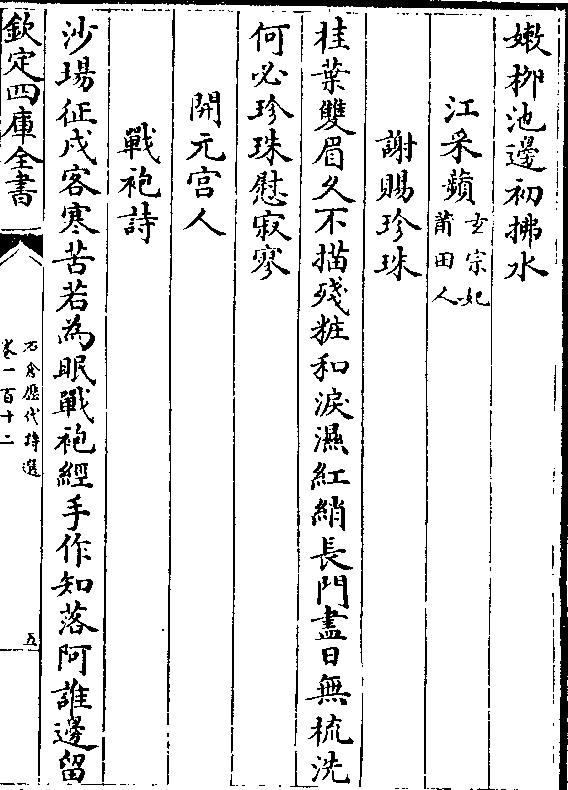 嫩柳池邊初拂水
江采蘋玄宗妃莆田人
謝賜珍珠
桂葉雙眉久不描殘粧和淚濕紅綃長門盡日無梳洗
何必珍珠慰寂寥
開元宮人
戰袍詩
沙塲征戍客寒苦若為眠戰袍經手作知落阿誰邊留
欽定四庫全書
石倉歷代詩選
卷一百十二
五